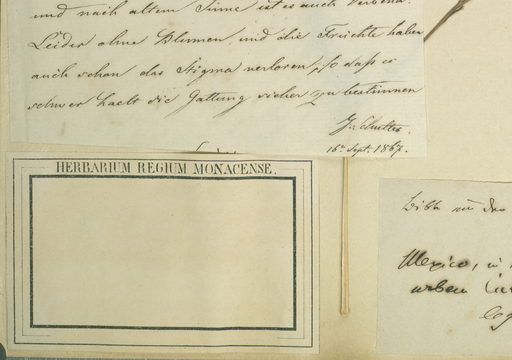 und nach altem Sinne ist es auch Verbena.
Leider ohne Blumen und die Früchte haben
auch schon das Stigma verloren, so daß es
schwer haelt die Gattung sicher zu bestimmen
16. Sept. 1867.
HERBARIUM REGIUM MONACENSE.
Mexico, in
urbem